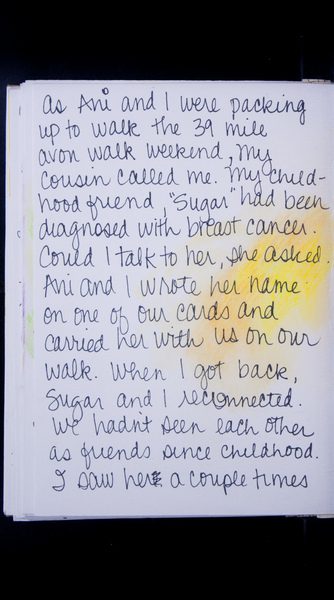 as Ani and I were packing
up to walk the 39 mile
avon walk weekend, my
cousin called me. My child-
hood friend, "Sugar" had been
diagnosed with breast cancer.
Could I talk to her, she asked.
Ani and I wrote her name
on one of our cards and
carried her with us on our
walk. When I got back,
Sugar and I reconnected.
We hadn't seen each other
as friends since childhood.
I saw her a couple times